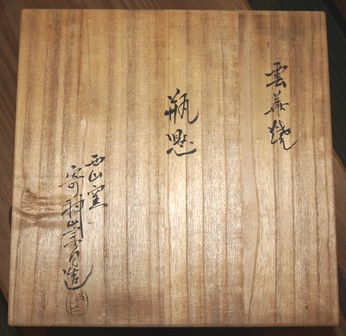 雲華焼
瓶懸
西山窯
寄神崇白造